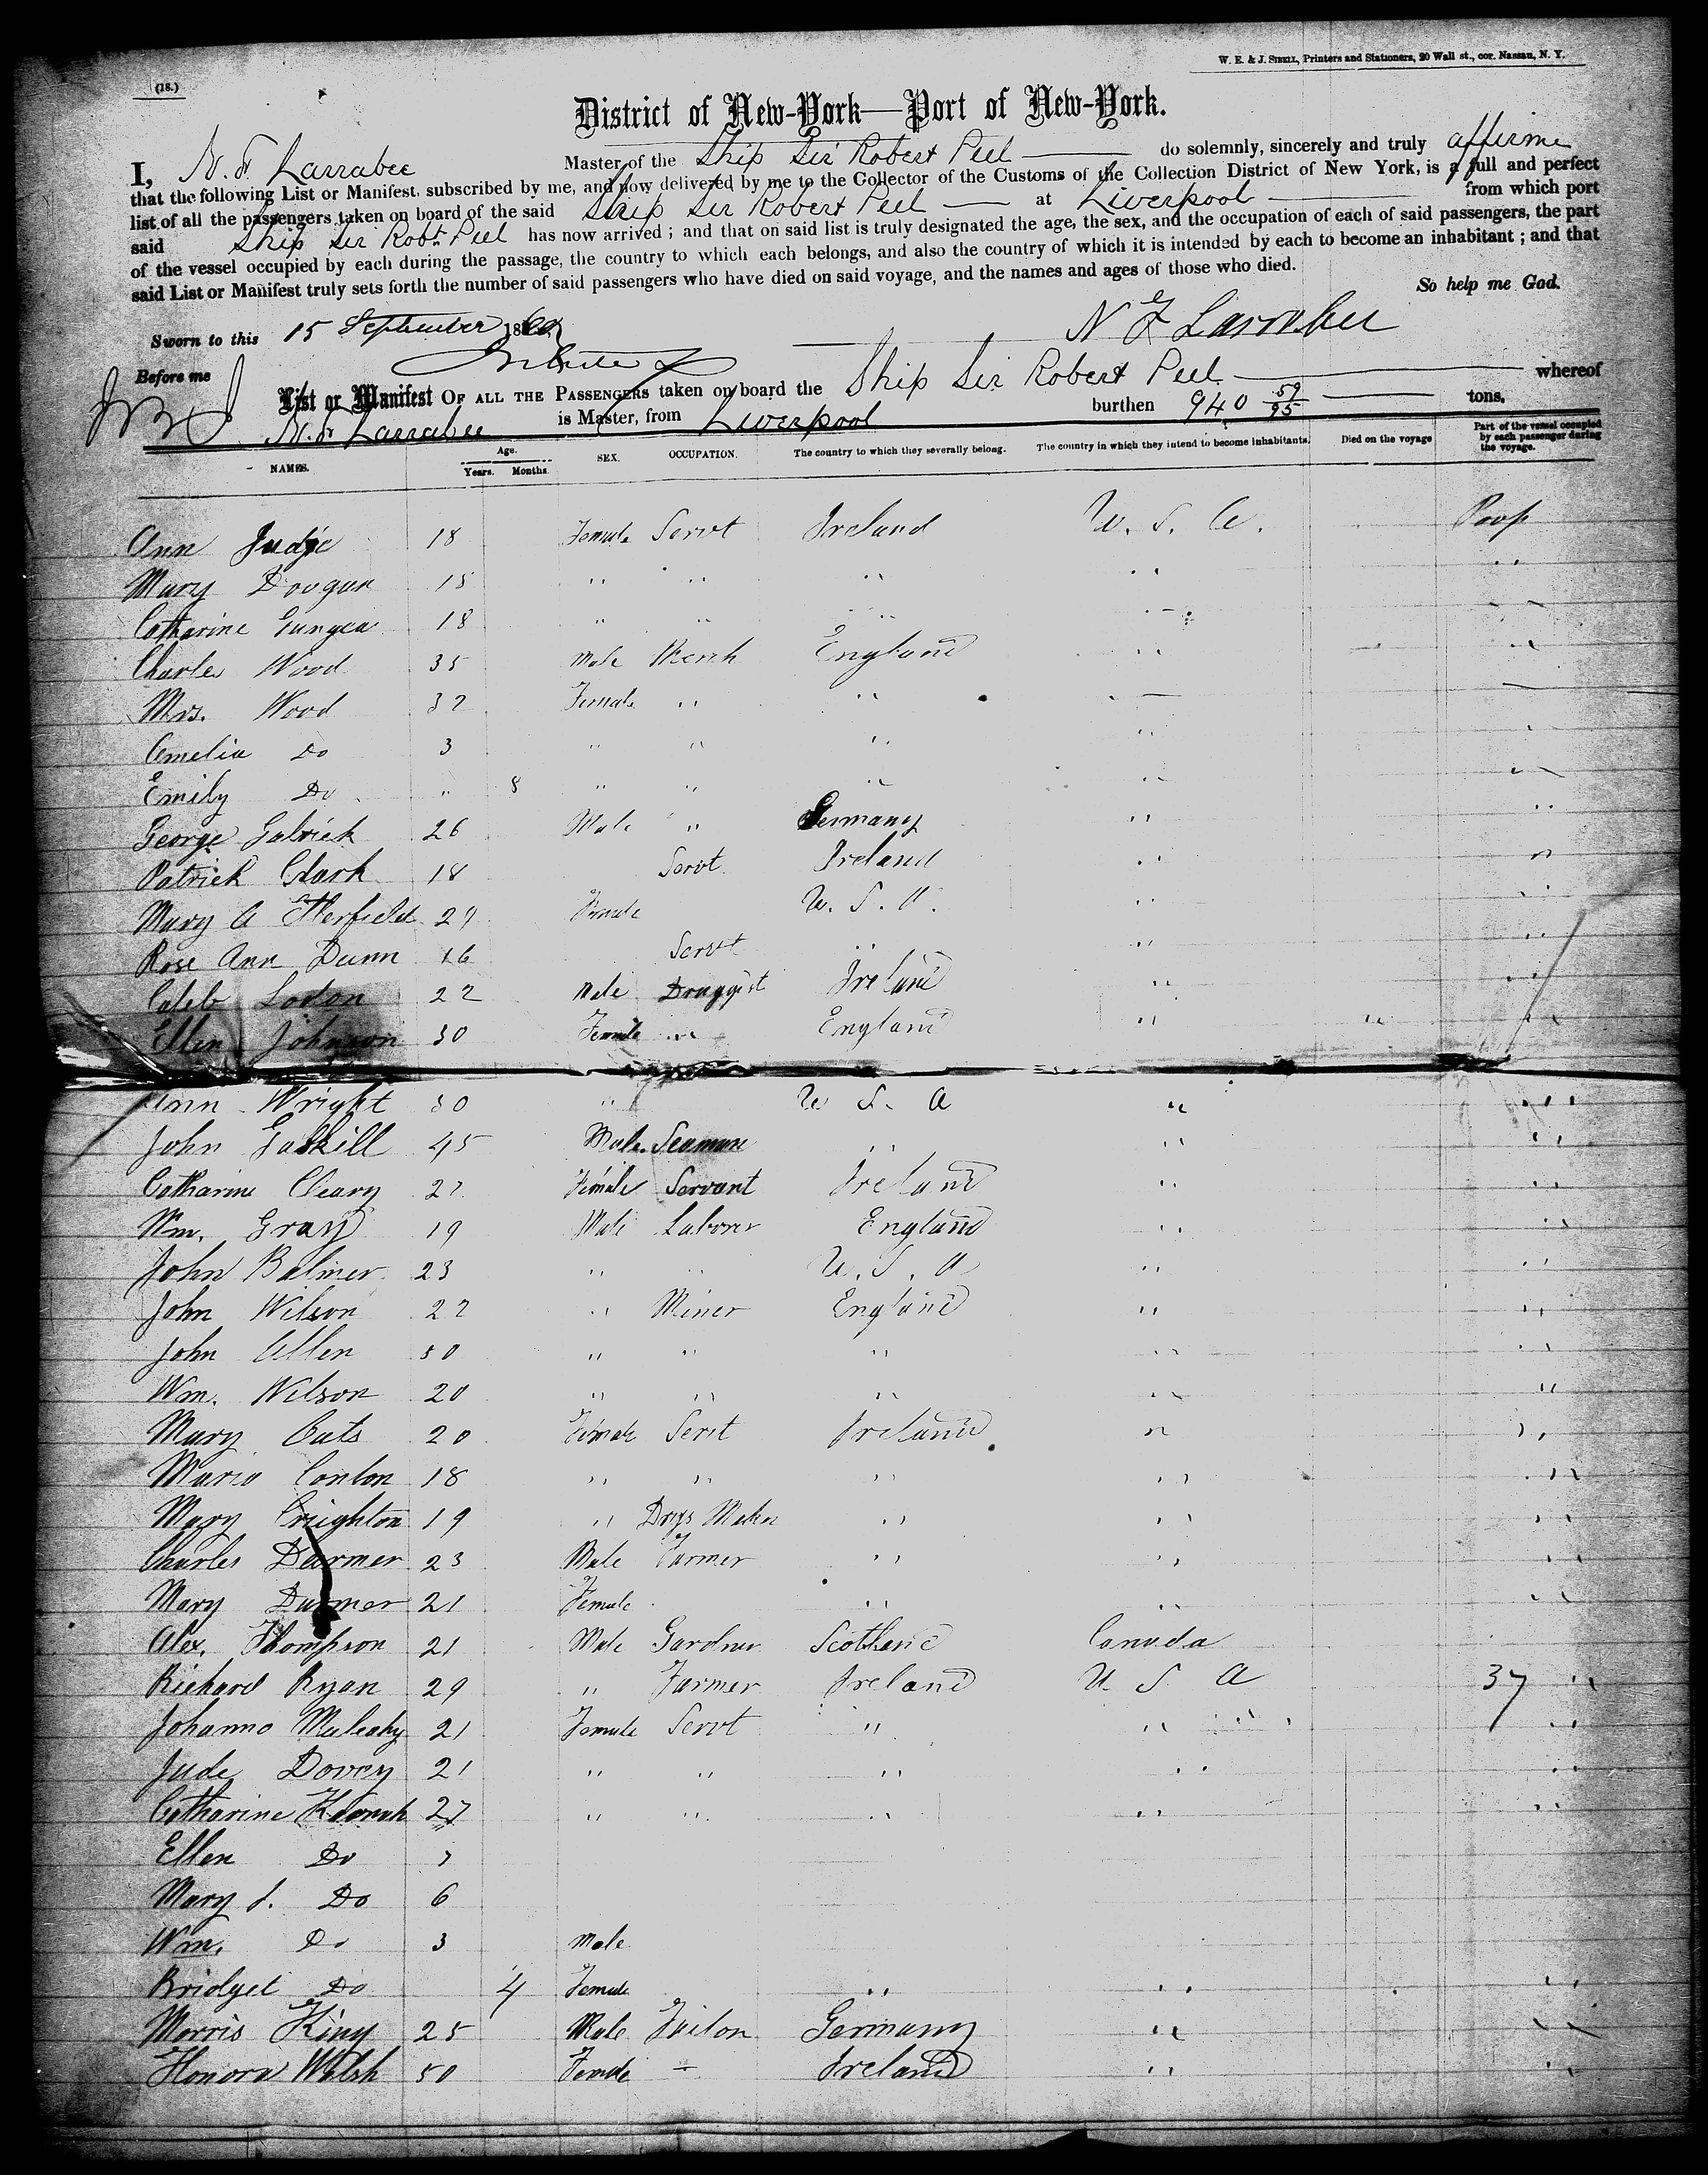 W. E. & J. SIBELL, Printers and Stationers, 20 Wall st., cor. Nassau, N. Y.
(18.)
District of New-York—Port of New-York.
I, N. F. Larrabee Master of the Ship Sir Robert Peel do solemnly, sincerely and truly affirm
that the following List or Manifest, subscribed by me, and now delivered by me to the Collector of the Customs of the Collection District of New York, is a full and perfect
list of all the passengers taken on board of the said Ship Sir Robert Peel at Liverpool from which port
said Ship Sir Robt. Peel has now arrived; and that on said list is truly designated the age, the sex, and the occupation of each of said passengers, the part
of the vessel occupied by each during the passage, the country to which each belongs, and also the country of which it is intended by each to become an inhabitant; and that
said List or Manifest truly sets forth the number of said passengers who have died on said voyage, and the names and ages of those who died.
So help me God.
Sworn to this 15 September 1860
N F Larrabee
Before me
List or Manifest OF ALL THE PASSENGERS taken on board the Ship Sir Robert Peel whereof
N. F. Larrabee is Master, from Liverpool burthen 940 59/95 tons.
NAMES. Age. Years. Months. SEX. OCCUPATION. The country to which they severally belong. The country in which they intend to become inhabitants. Died on the voyage Part of the vessel occupied by each passenger during the voyage.
Ann Judge 18 Female Servt Ireland U. S. A. Poop
Mary 15 " " " " "
Catharine 18 " " " " "
Charles Wood 35 Male Merch England " "
Mrs. Wood 32 Female " " " "
Amelia Do 3 " " " " "
Emily Do " 8 " " " " "
George 26 Male " Germany " "
Patrick Clark 18 Servt Ireland " "
Mary A 29 Female U. S. A. " "
Rose Ann Dunn 16 Servt " " "
Caleb 22 Male Druggist Ireland " "
Ellen Johnson 30 Female " England " " "
Ann Wright 30 " U S. A " "
John Gaskill 45 Male Seaman " " "
Catharine Cleary 22 Female Servant Ireland " "
Wm. Gray 19 Male Laborer England " "
John Balmer 23 " " U. S. A " "
John Wilson 22 " Miner England " "
John Allen 50 " " " " "
Wm. Wilson 20 " " " " "
Mary Oats 20 Female Servt Ireland " "
Maria Conlon 18 " " " " "
Mary Crieghton 19 " Drys Maker " " "
Charles Darmer 23 Male Farmer " " "
Mary Darmer 21 Female " " "
Alex. Thompson 21 Male Gardner Scotland Canada
Richard Ryan 29 " Farmer Ireland U S A 37 "
Johanna Mulcahy 21 Female Servt " " "
Jude Dovey 21 " " " " "
Catharine 27 " " " " "
Ellen Do 7
Mary J. Do 6
Wm. Do 3 Male
Bridget Do 4 Female " " "
Morris King 25 Male Tailor Germany " "
Honora Walsh 50 Female — Ireland " "